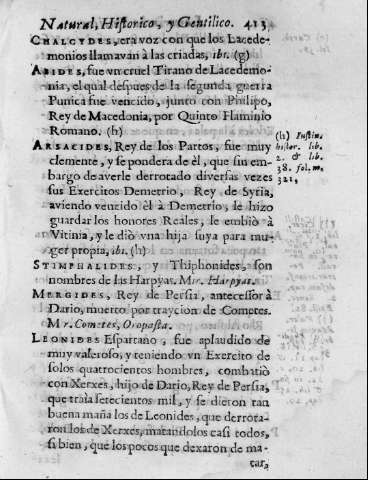 Natural, Historico, y Gentilico. 413
CHALCYDES, era voz con que los Lacede-
monios llamavan à las criadas, ibi. (g)
ABIDES, fue vn cruel Tirano de Lacedemo-
nia, el qual despues de la segunda guerra
Punica fue vencido, junto con Philipo,
Rey de Macedonia, por Quinto Flaminio
Romano. (h)
ARSACIDES, Rey de los Partos, fue muy
clemente, y se pondera de èl, que sin em-
bargo de averle derrotado diversas vezes
sus Exercitos Demetrio, Rey de Syria,
aviendo vencido èl à Demetrio, le hizo
guardar los honores Reales, le embiò à
Vitinia, y le diò vna hija suya para mu-
ger propia, ibi. (h)
STIMPHALIDES, y Thiphonides, son
nombres de las Harpyas. Mir. Harpyas.
MERGIDES, Rey de Persia, antecessor à
Dario, muerto por traycion de Cometes.
Mr. Cometes, Oropasta.
LEONIDES Espartano, fue aplaudido de
muy valeroso, y teniendo vn Exercito de
solos quatrocientos hombres, combatiò
con Xerxes, hijo de Dario, Rey de Persia,
que traìa setecientos mil, y se dieron tan
buena maña los de Leonides, que derrota-
ron los de Xerxes, matandolos casi todos,
si bien, que los pocos que dexaron de ma-
tar,
(h) Justin.
histor. lib.
2. & lib.
38. fol. m.
321,